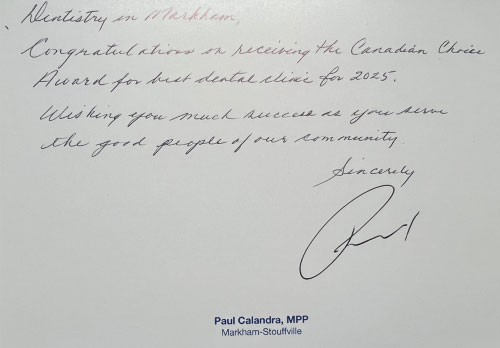 Dentistry in Markham,
Congratulations on receiving the Canadian Choice
Award for best dental clinic for 2025.
Wishing you much success as you serve
the good people of our community.
Sincerely
Paul
Paul Calandra, MPP
Markham-Stouffville